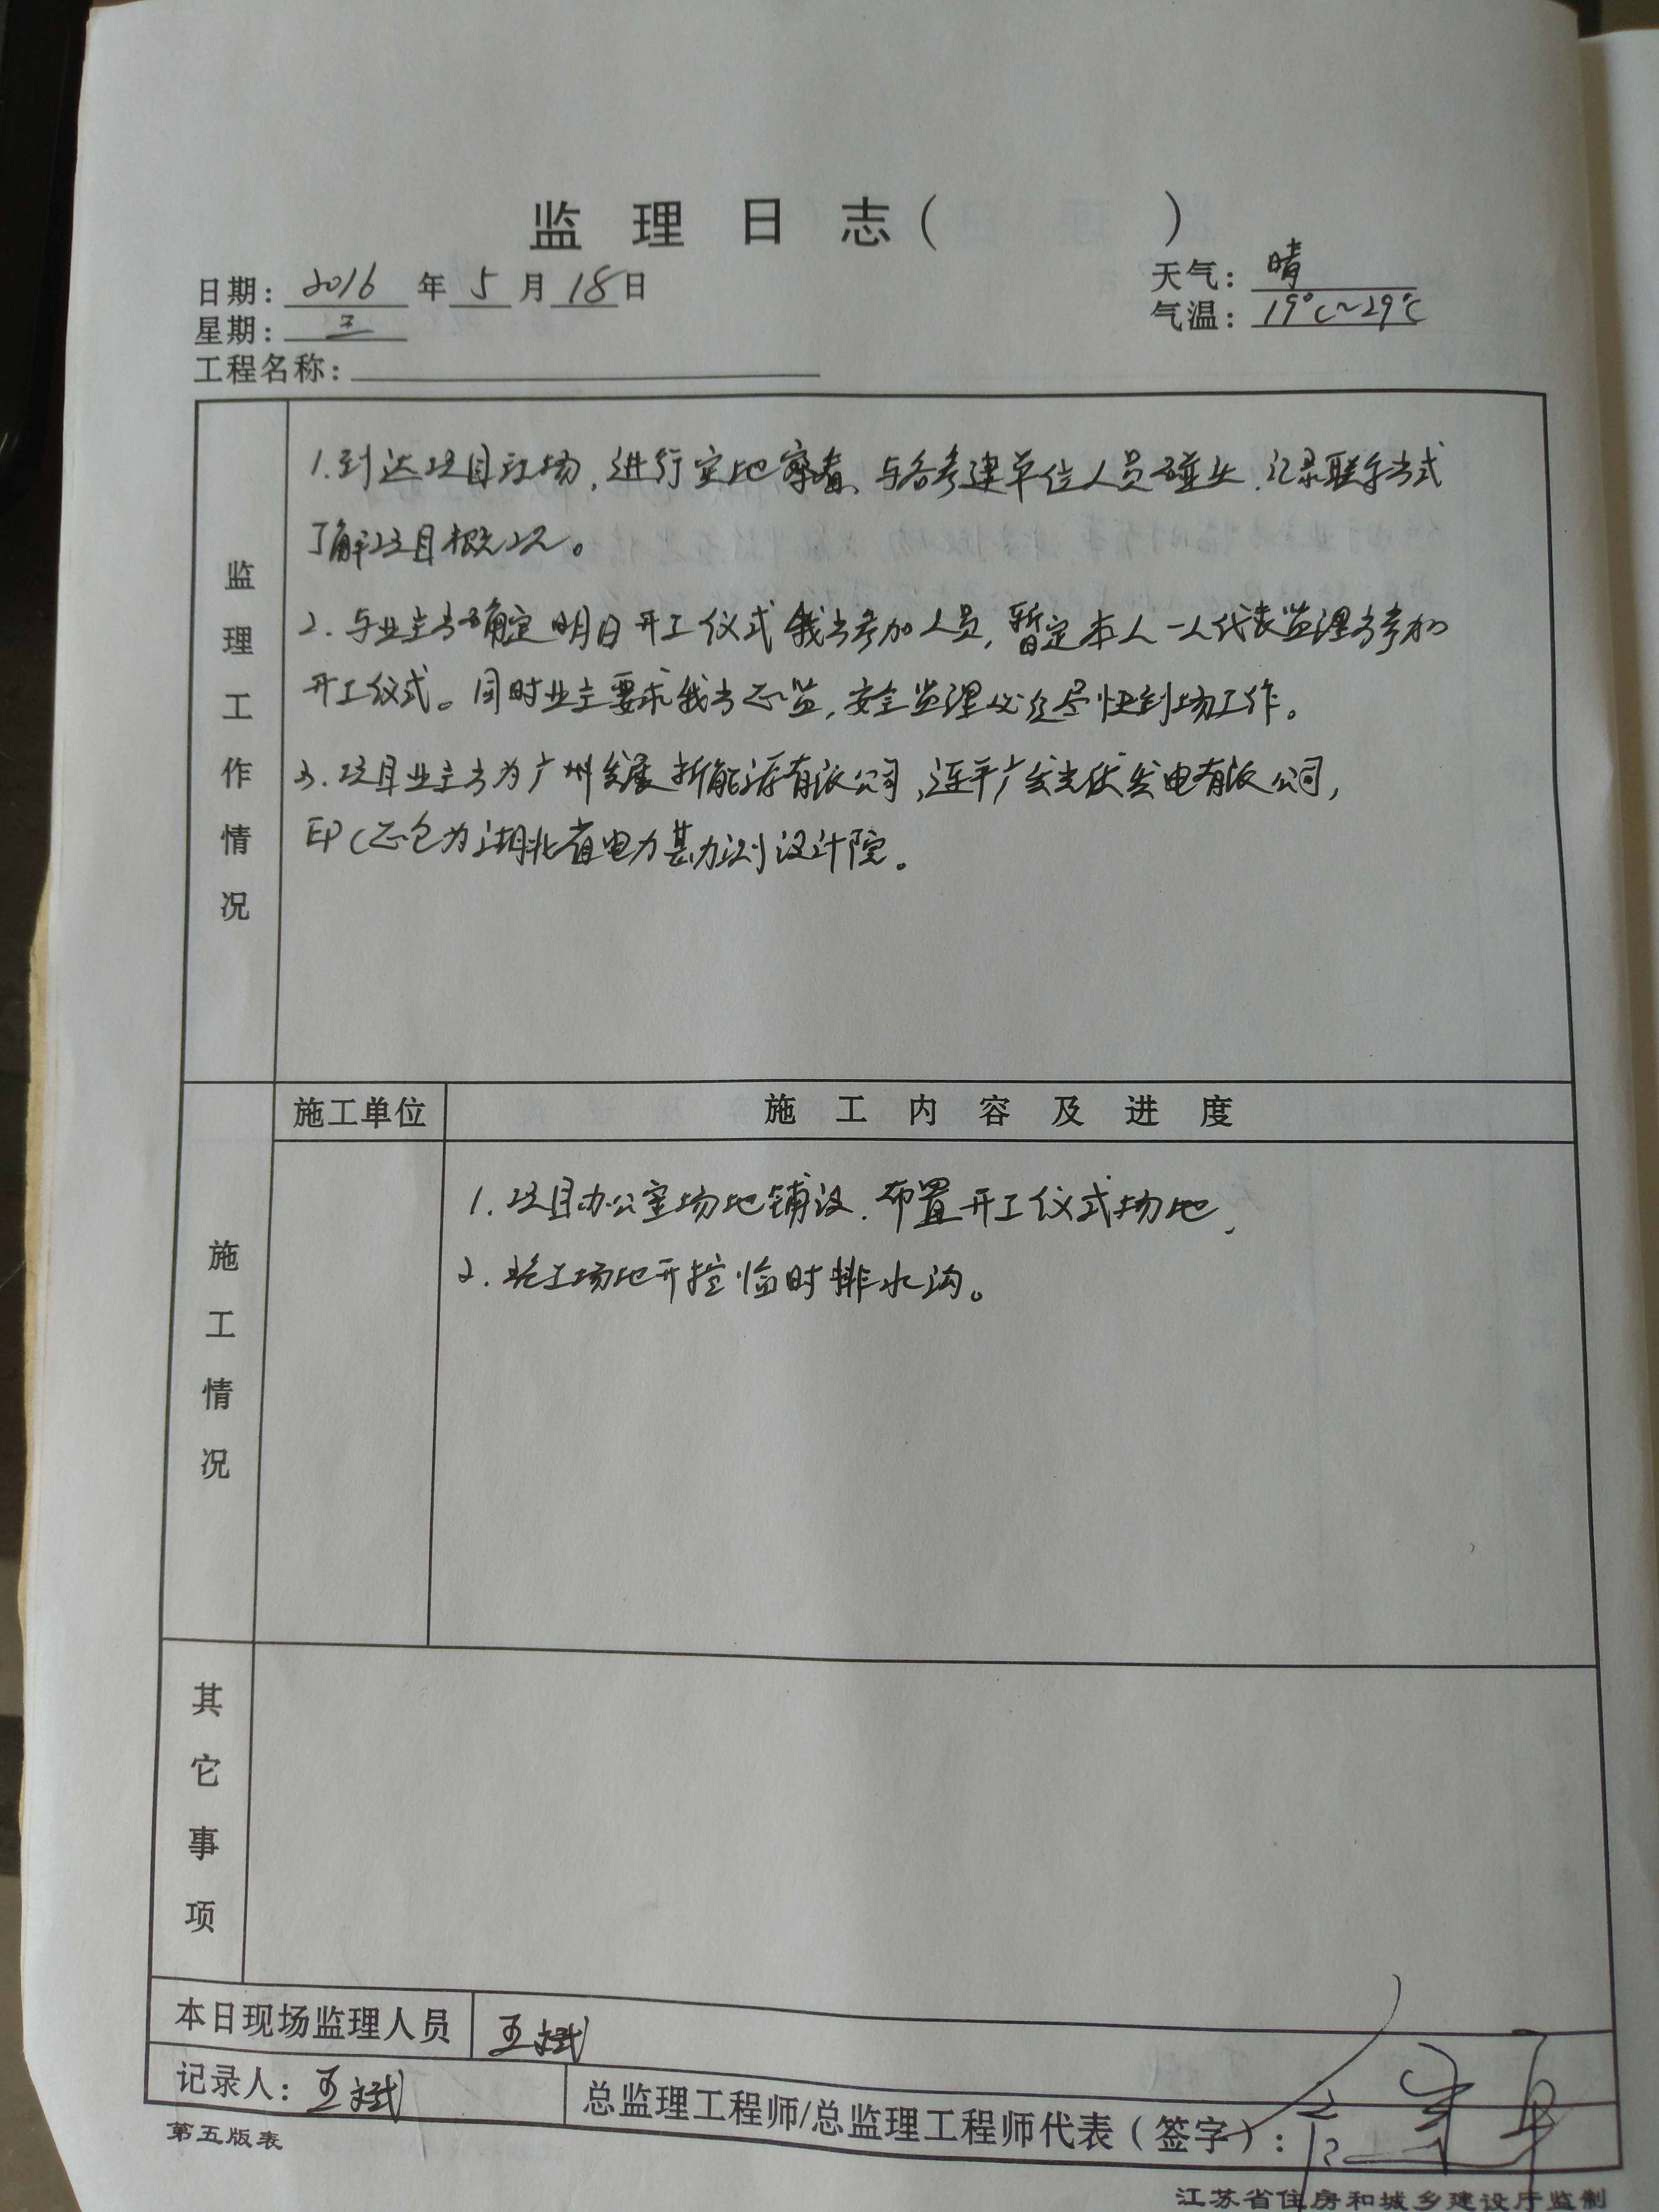 监理日志（ ）
日期：2016年5月18日
天气：晴
星期：三
气温：19℃~29℃
工程名称：
监理工作情况
1.到达项目现场，进行实地察看、与各参建单位人员碰头，记录联系方式
了解项目概况。
2.与业主方确定明日开工仪式我方参加人员，暂定本人一人代表监理方参加
开工仪式。同时业主要求我方总监，安全监理必须尽快到场工作。
3.项目业主方为广州发展新能源有限公司，连平广发光伏发电有限公司，
EPC总包为湖北省电力勘测设计院。
施工情况
施工单位 施工内容及进度
1.项目办公室场地铺设，布置开工仪式场地，
2.施工场地开挖临时排水沟。
其它事项
本日现场监理人员 王斌
记录人：王斌 总监理工程师/总监理工程师代表（签字）：
第五版表
江苏省住房和城乡建设厅监制